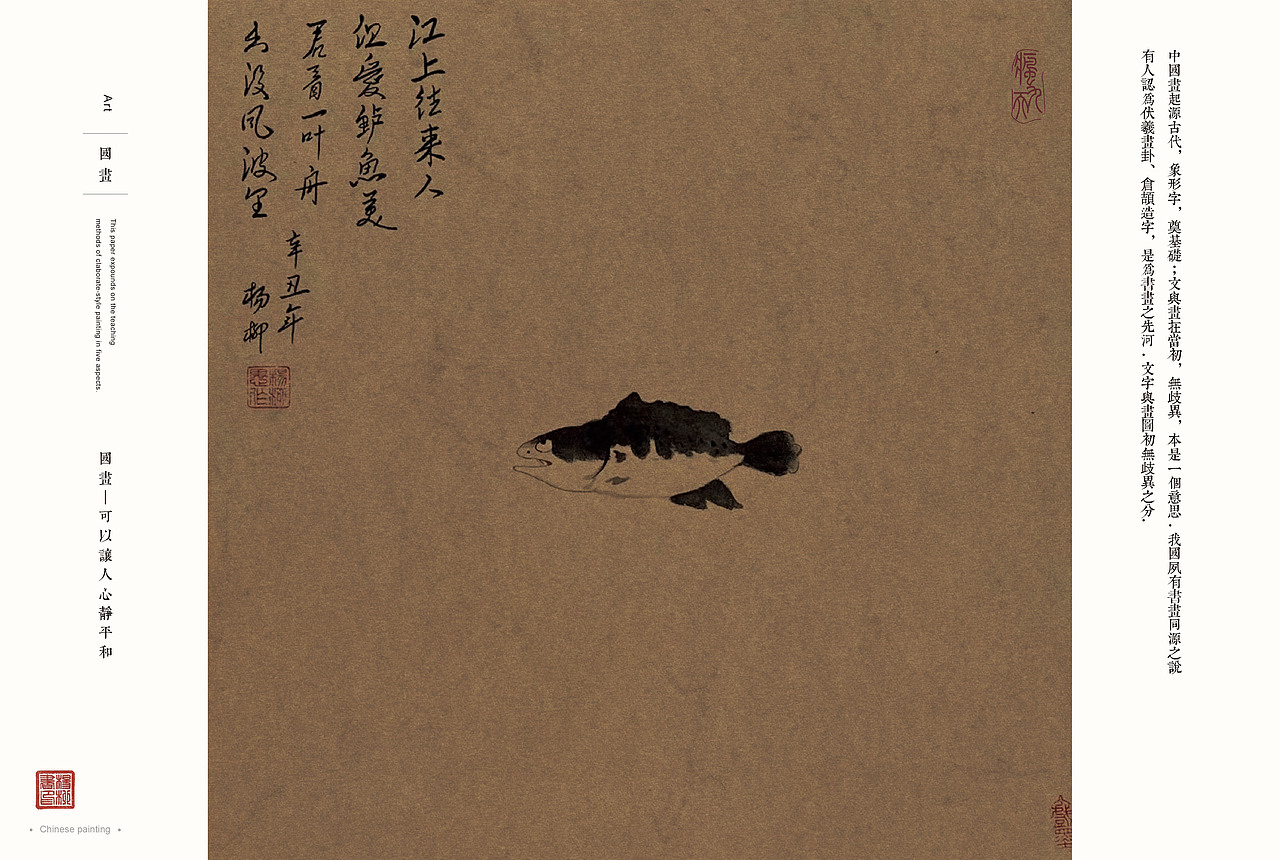 中國畫起源古代，象形字，奠基礎；文與畫在當初，無歧異，本是一個意思．我國夙有書畫同源之說
有人認為伏羲畫卦、倉頡造字，是為書畫之先河．文字與畫圖初無歧異之分．
江上往来人
但爱鲈魚美
君看一叶舟
出没风波里
辛丑年
杨柳
Art
國畫
This paper expounds on the teaching
methods of claborate-style painting in five aspects.
國畫—可以讓人心靜平和
Chinese painting